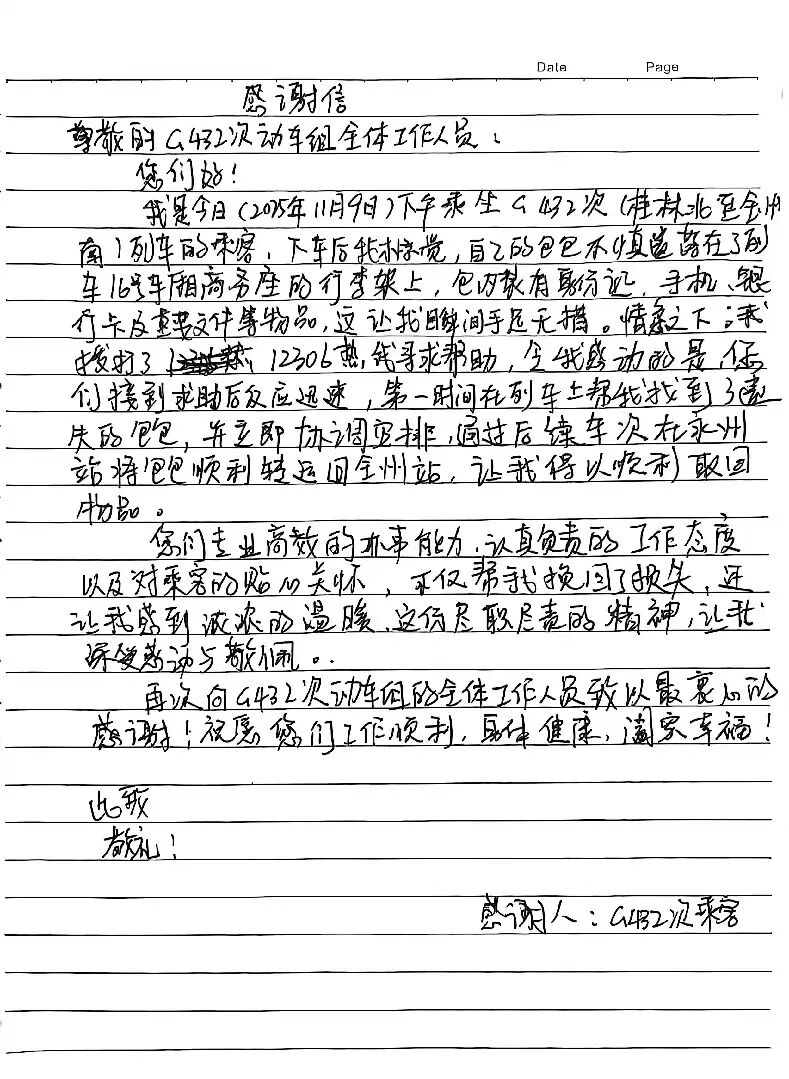 Date Page
感谢信
尊敬的G432次动车组全体工作人员：
您们好！
我是今日(2025年11月9日)下午乘坐G432次(桂林北至全州
南)列车的乘客，下车后我惊觉，自己的包包不慎遗落在了列
车16号车厢商务座的行李架上，包内装有身份证、手机、银
行卡及重要文件等物品，这让我瞬间手足无措。情急之下，我
拨打了12306热线寻求帮助，令我感动的是，你
们接到求助后反应迅速，第一时间在列车上帮我找到了遗
失的包包，并立即协调安排，通过后续车次在永州
站将包包顺利转运回全州站，让我得以顺利取回
物品。
您们专业高效的办事能力、认真负责的工作态度
以及对乘客的贴心关怀，不仅帮我挽回了损失，还
让我感到浓浓的温暖，这份尽职尽责的精神，让我
深受感动与敬佩。
再次向G432次动车组的全体工作人员致以最衷心的
感谢！祝愿您们工作顺利，身体健康，阖家幸福！
此致
敬礼！
感谢人：G432次乘客